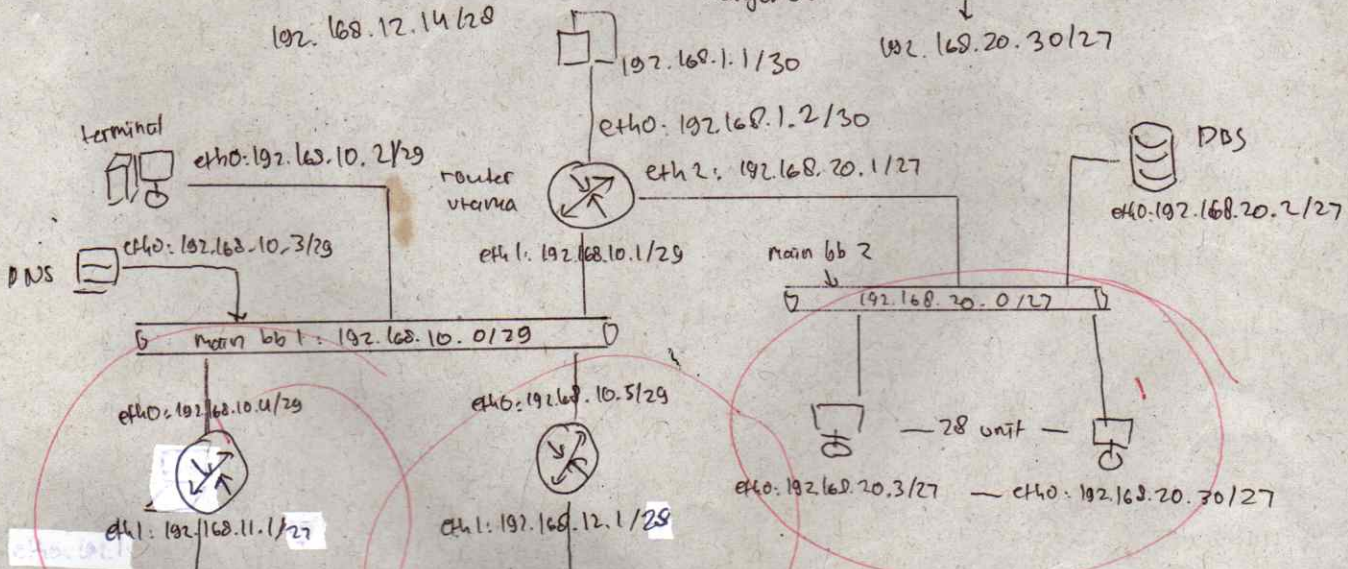 192.168.12.14/28
192.168.20.30/27
192.168.1.1/30
eth0: 192.168.1.2/30
terminal
eth0:192.168.10.2/29
router
utama
eth2: 192.168.20.1/27
DBS
eth0:192.168.20.2/27
DNS
eth0:192.168.10.3/29
eth1: 192.168.10.1/29
main bb 2
192.168.20.0/27
main bb 1: 192.168.10.0/29
eth0:192.168.10.4/29
eth0:192.168.10.5/29
— 28 unit —
eth0:192.168.20.3/27 — eth0: 192.168.20.30/27
eth1: 192.168.11.1/27
eth1: 192.168.12.1/28